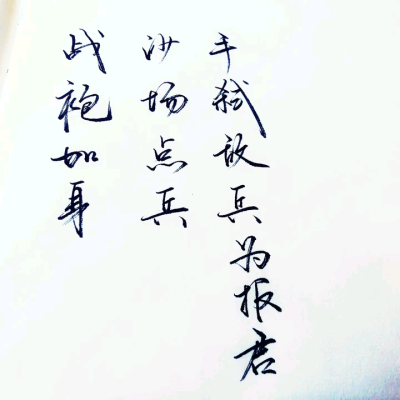 战袍加身
沙场点兵
手弑敌兵为报君